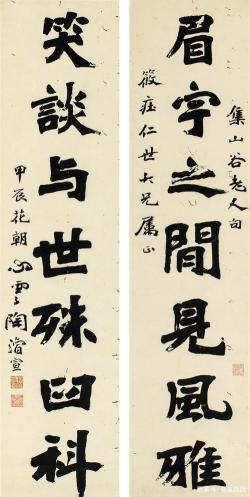 集山谷老人句
眉宇之閒見風雅
筱仁世大兄属正
笑談与世殊臼科
甲辰花朝心雲陶濬宣